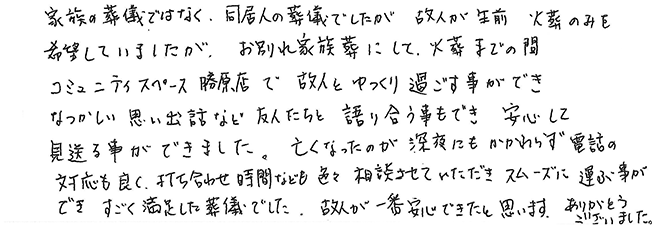 家族の葬儀ではなく、同居人の葬儀でしたが 故人が生前 火葬のみを
希望していましたが、お別れ家族葬にして、火葬までの間
コミュニティスペース勝原店で 故人とゆっくり過ごす事ができ
なつかしい思い出話など友人たちと語り合う事もでき 安心して
見送る事ができました。亡くなったのが深夜にもかかわらず電話の
対応も良く、打ち合わせ時間なども色々相談させていただきスムーズに運ぶ事が
でき すごく満足した葬儀でした、故人が一番安心できたと思います ありがとう
ございました。